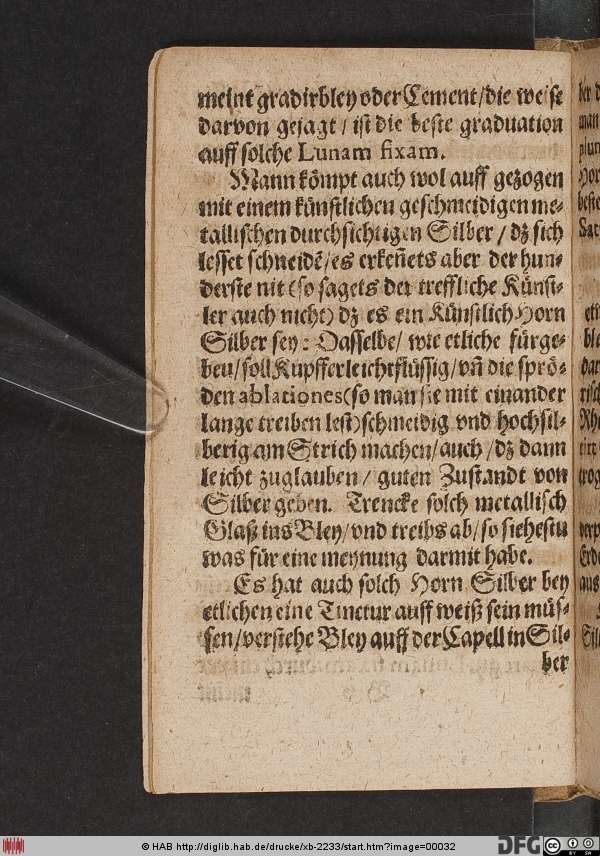 meint gradirbley oder Cement/die weise
darvon gejagt / ist die beste graduation
auff solche Lunam fixam.
Mann kömpt auch wol auff gezogen
mit einem künstlichen geschmeidigen me-
tallischen durchsichtigen Silber / dz sich
lesset schneidē/es erkeñets aber der hun-
derste nit (so sagets der treffliche Künst-
ler auch nicht) dz es ein Künstlich Horn
Silber sey: Dasselbe/ wie etliche fürge-
ben/soll Kupffer leichtflüssig/vñ die sprö-
den ablationes (so man sie mit einander
lange treiben lest) schmeidig vnd hochsil-
berig am Strich machen/auch/dz dann
leicht zuglauben/ guten Zustandt von
Silber geben. Trencke solch metallisch
Glaß ins Bley/vnd treibs ab/so siehestu
was für eine meynung darmit habe.
Es hat auch solch Horn Silber bey
etlichen eine Tinctur auff weiß sein müs-
sen/verstehe Bley auff der Capell in Sil-
ber
© HAB http://diglib.hab.de/drucke/xb-2233/start.htm?image=00032
DFG
cc BY SA